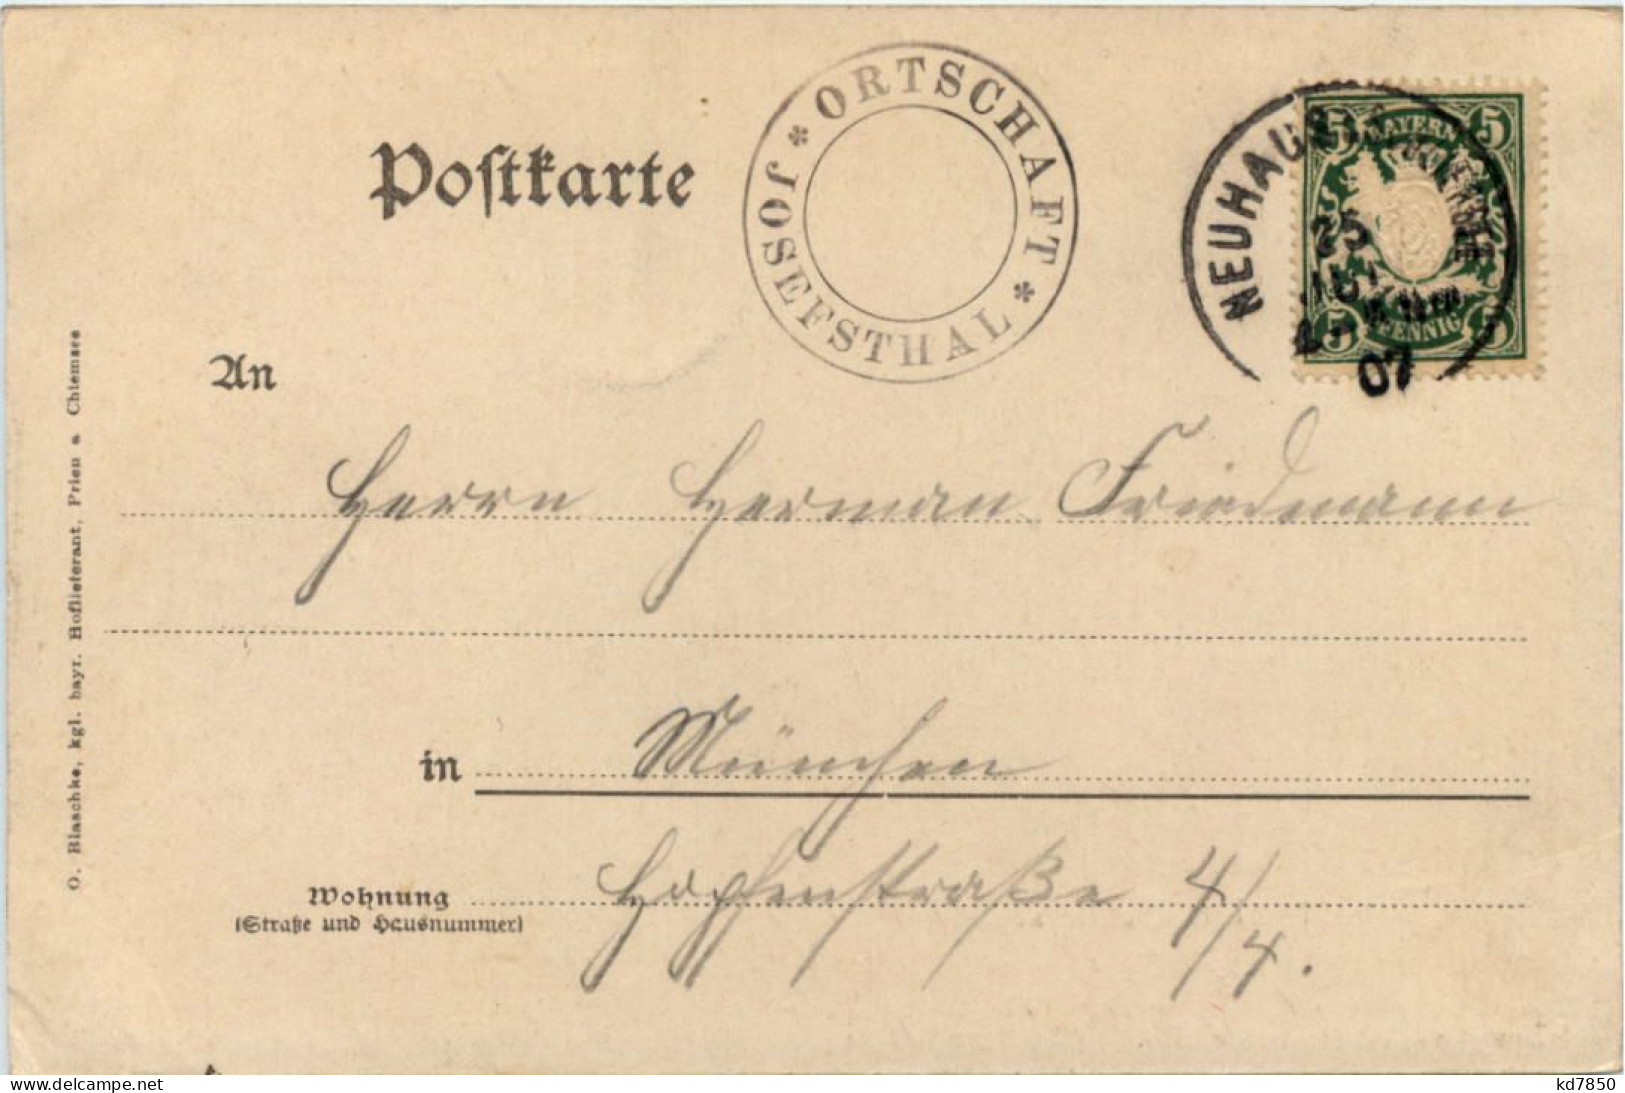 Postkarte
* ORTSCHAFT *
JOSEFSTHAL
NEUHAUS
25
07
5 BAYERN 5
5 PFENNIG 5
An
Herrn Herman Friedmann
in München
Wohnung Hopfenstraße 4/4.
(Straße und Hausnummer)
O. Blaschke, kgl. bayr. Hoflieferant, Prien a Chiemsee
delcampe.net
kd7850